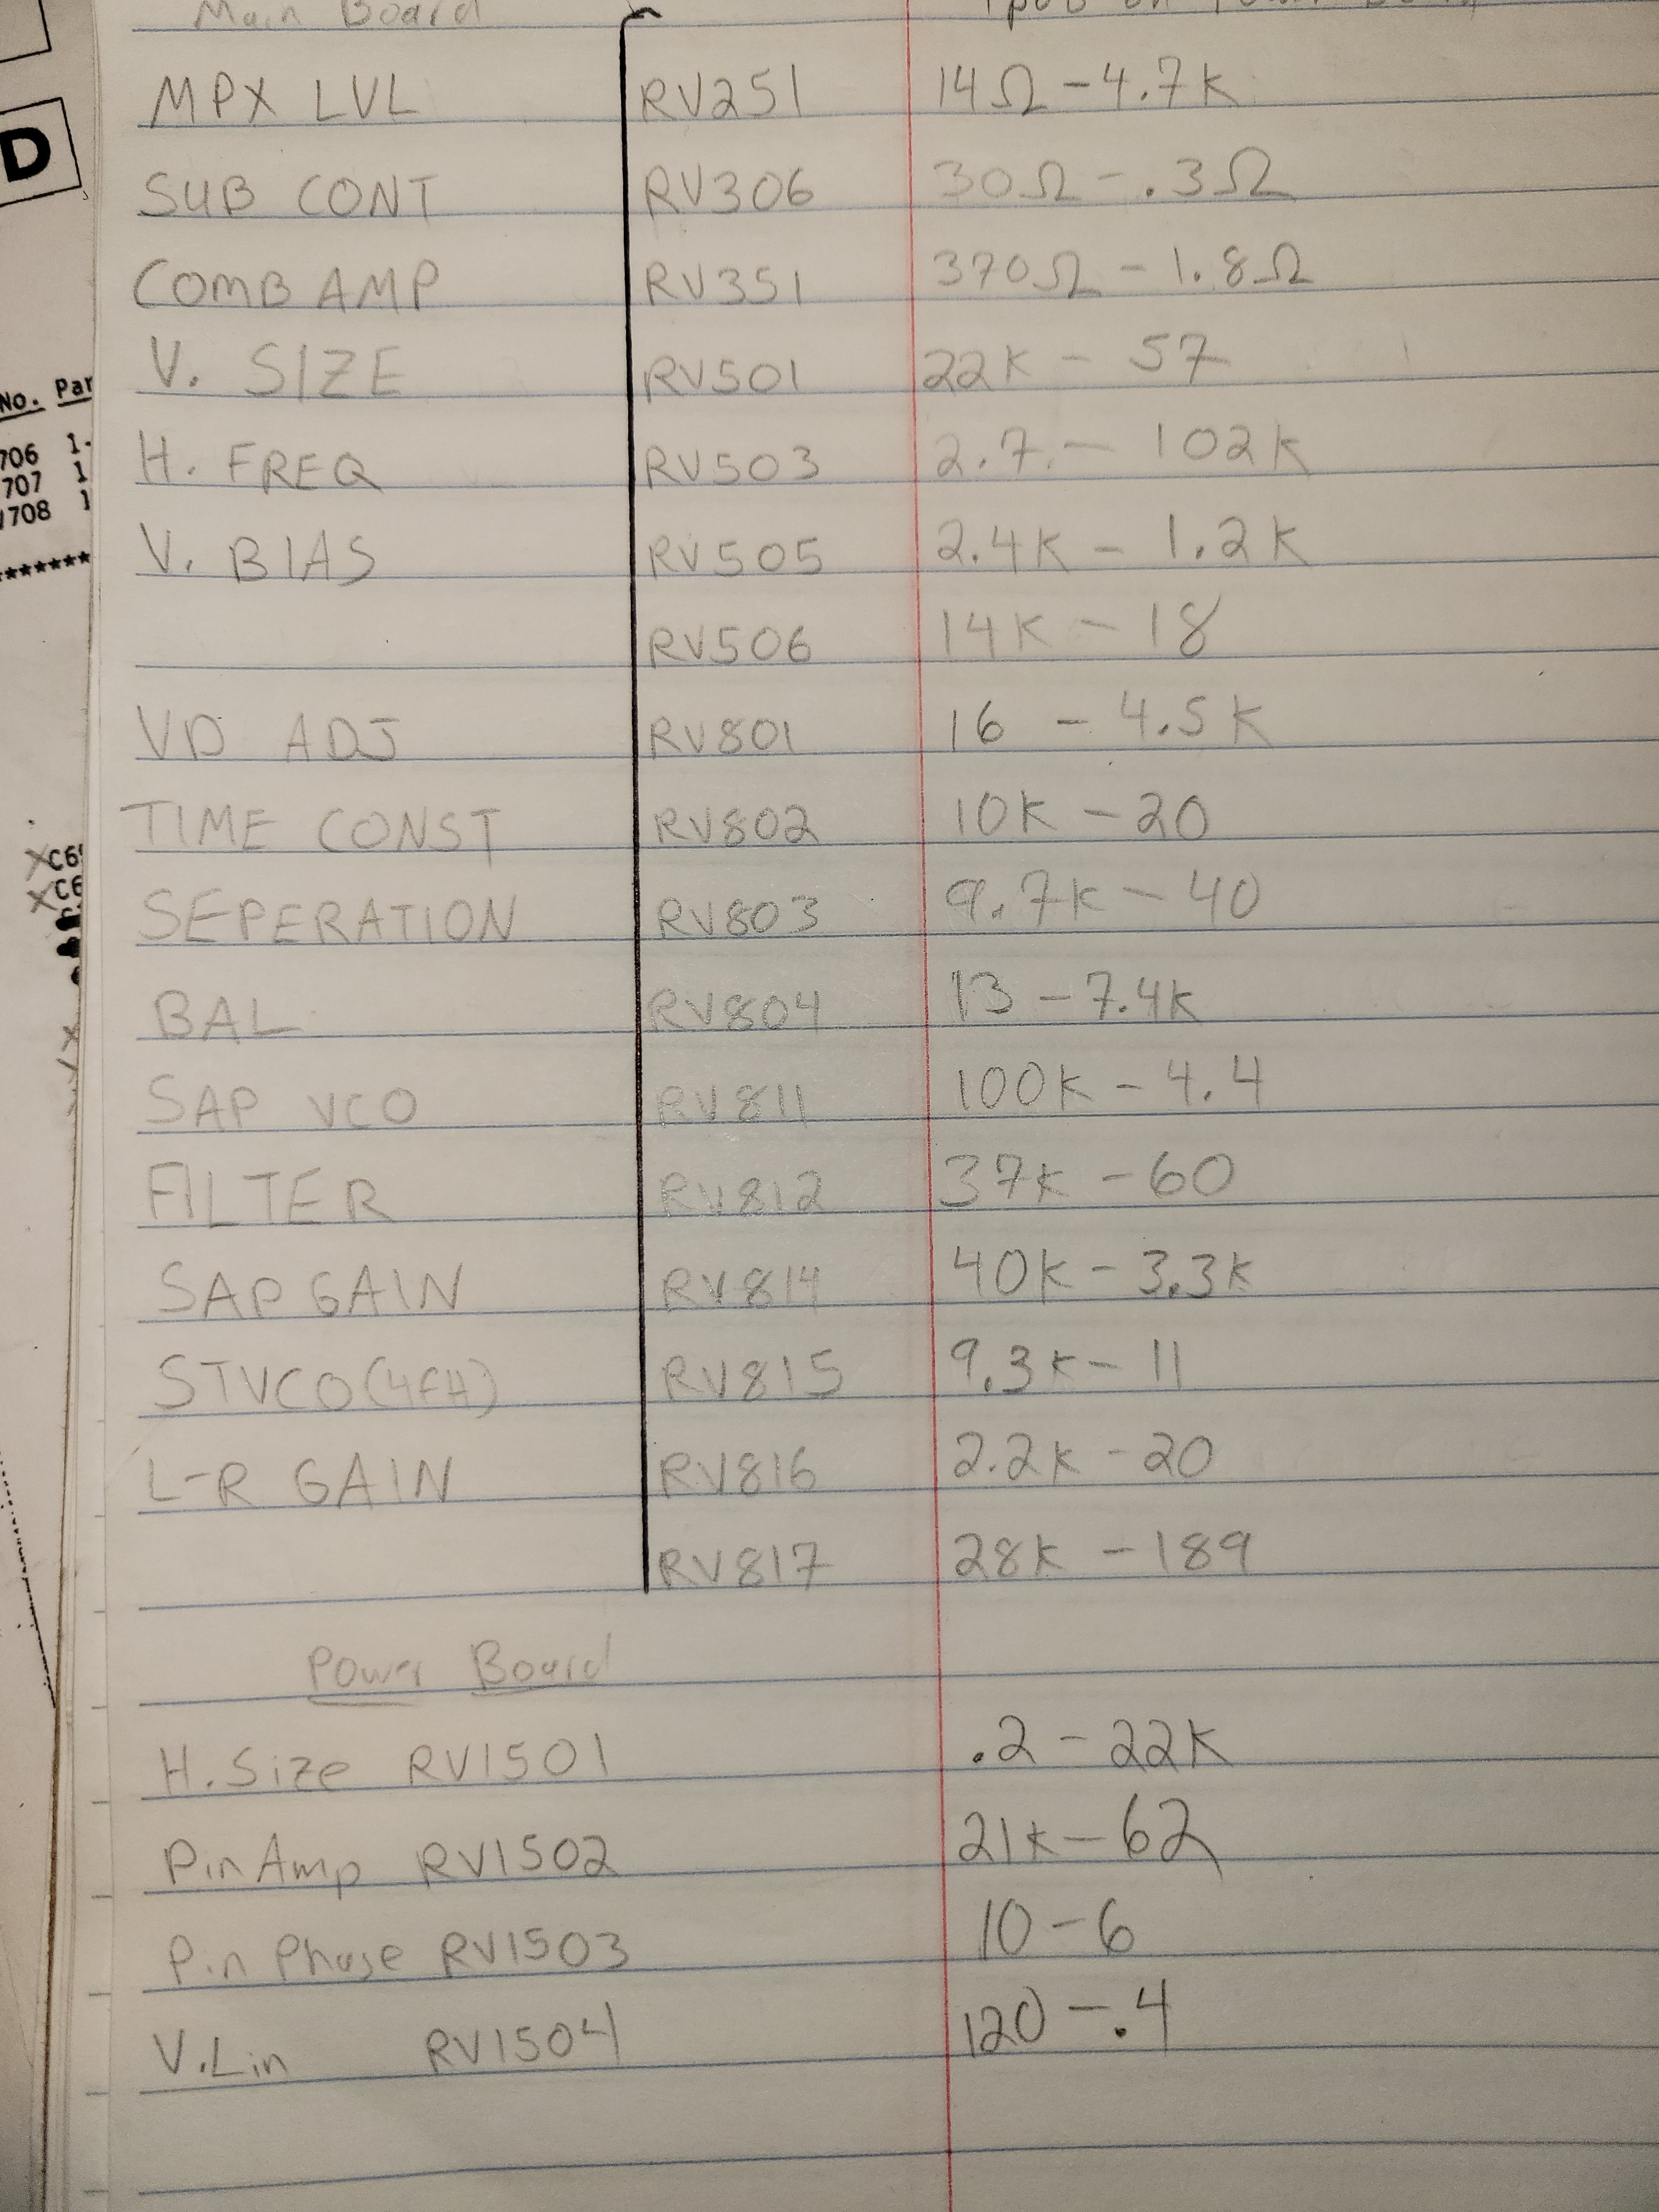 Main Board
D
MPX LVL RV251 14Ω - 4.7K
SUB CONT RV306 30Ω - .3Ω
COMB AMP RV351 370Ω - 1.8Ω
V. SIZE RV501 22K - 57
No. Par
H. FREQ RV503 2.7 - 102K
706 1-
707 1
708 1
V. BIAS RV505 2.4K - 1.2K
*******
RV506 14K - 18
VD ADJ RV801 16 - 4.5K
TIME CONST RV802 10K - 20
SEPERATION RV803 9.7K - 40
BAL RV804 13 - 7.4K
SAP VCO RV811 100K - 4.4
FILTER RV812 37K - 60
SAP GAIN RV814 40K - 3.3K
STVCO(4FH) RV815 9.3K - 11
L-R GAIN RV816 2.2K - 20
RV817 28K - 189
Power Board
H.Size RV1501 .2 - 22K
Pin Amp RV1502 21K - 62
Pin Phase RV1503 10 - 6
V.Lin RV1504 120 - .4